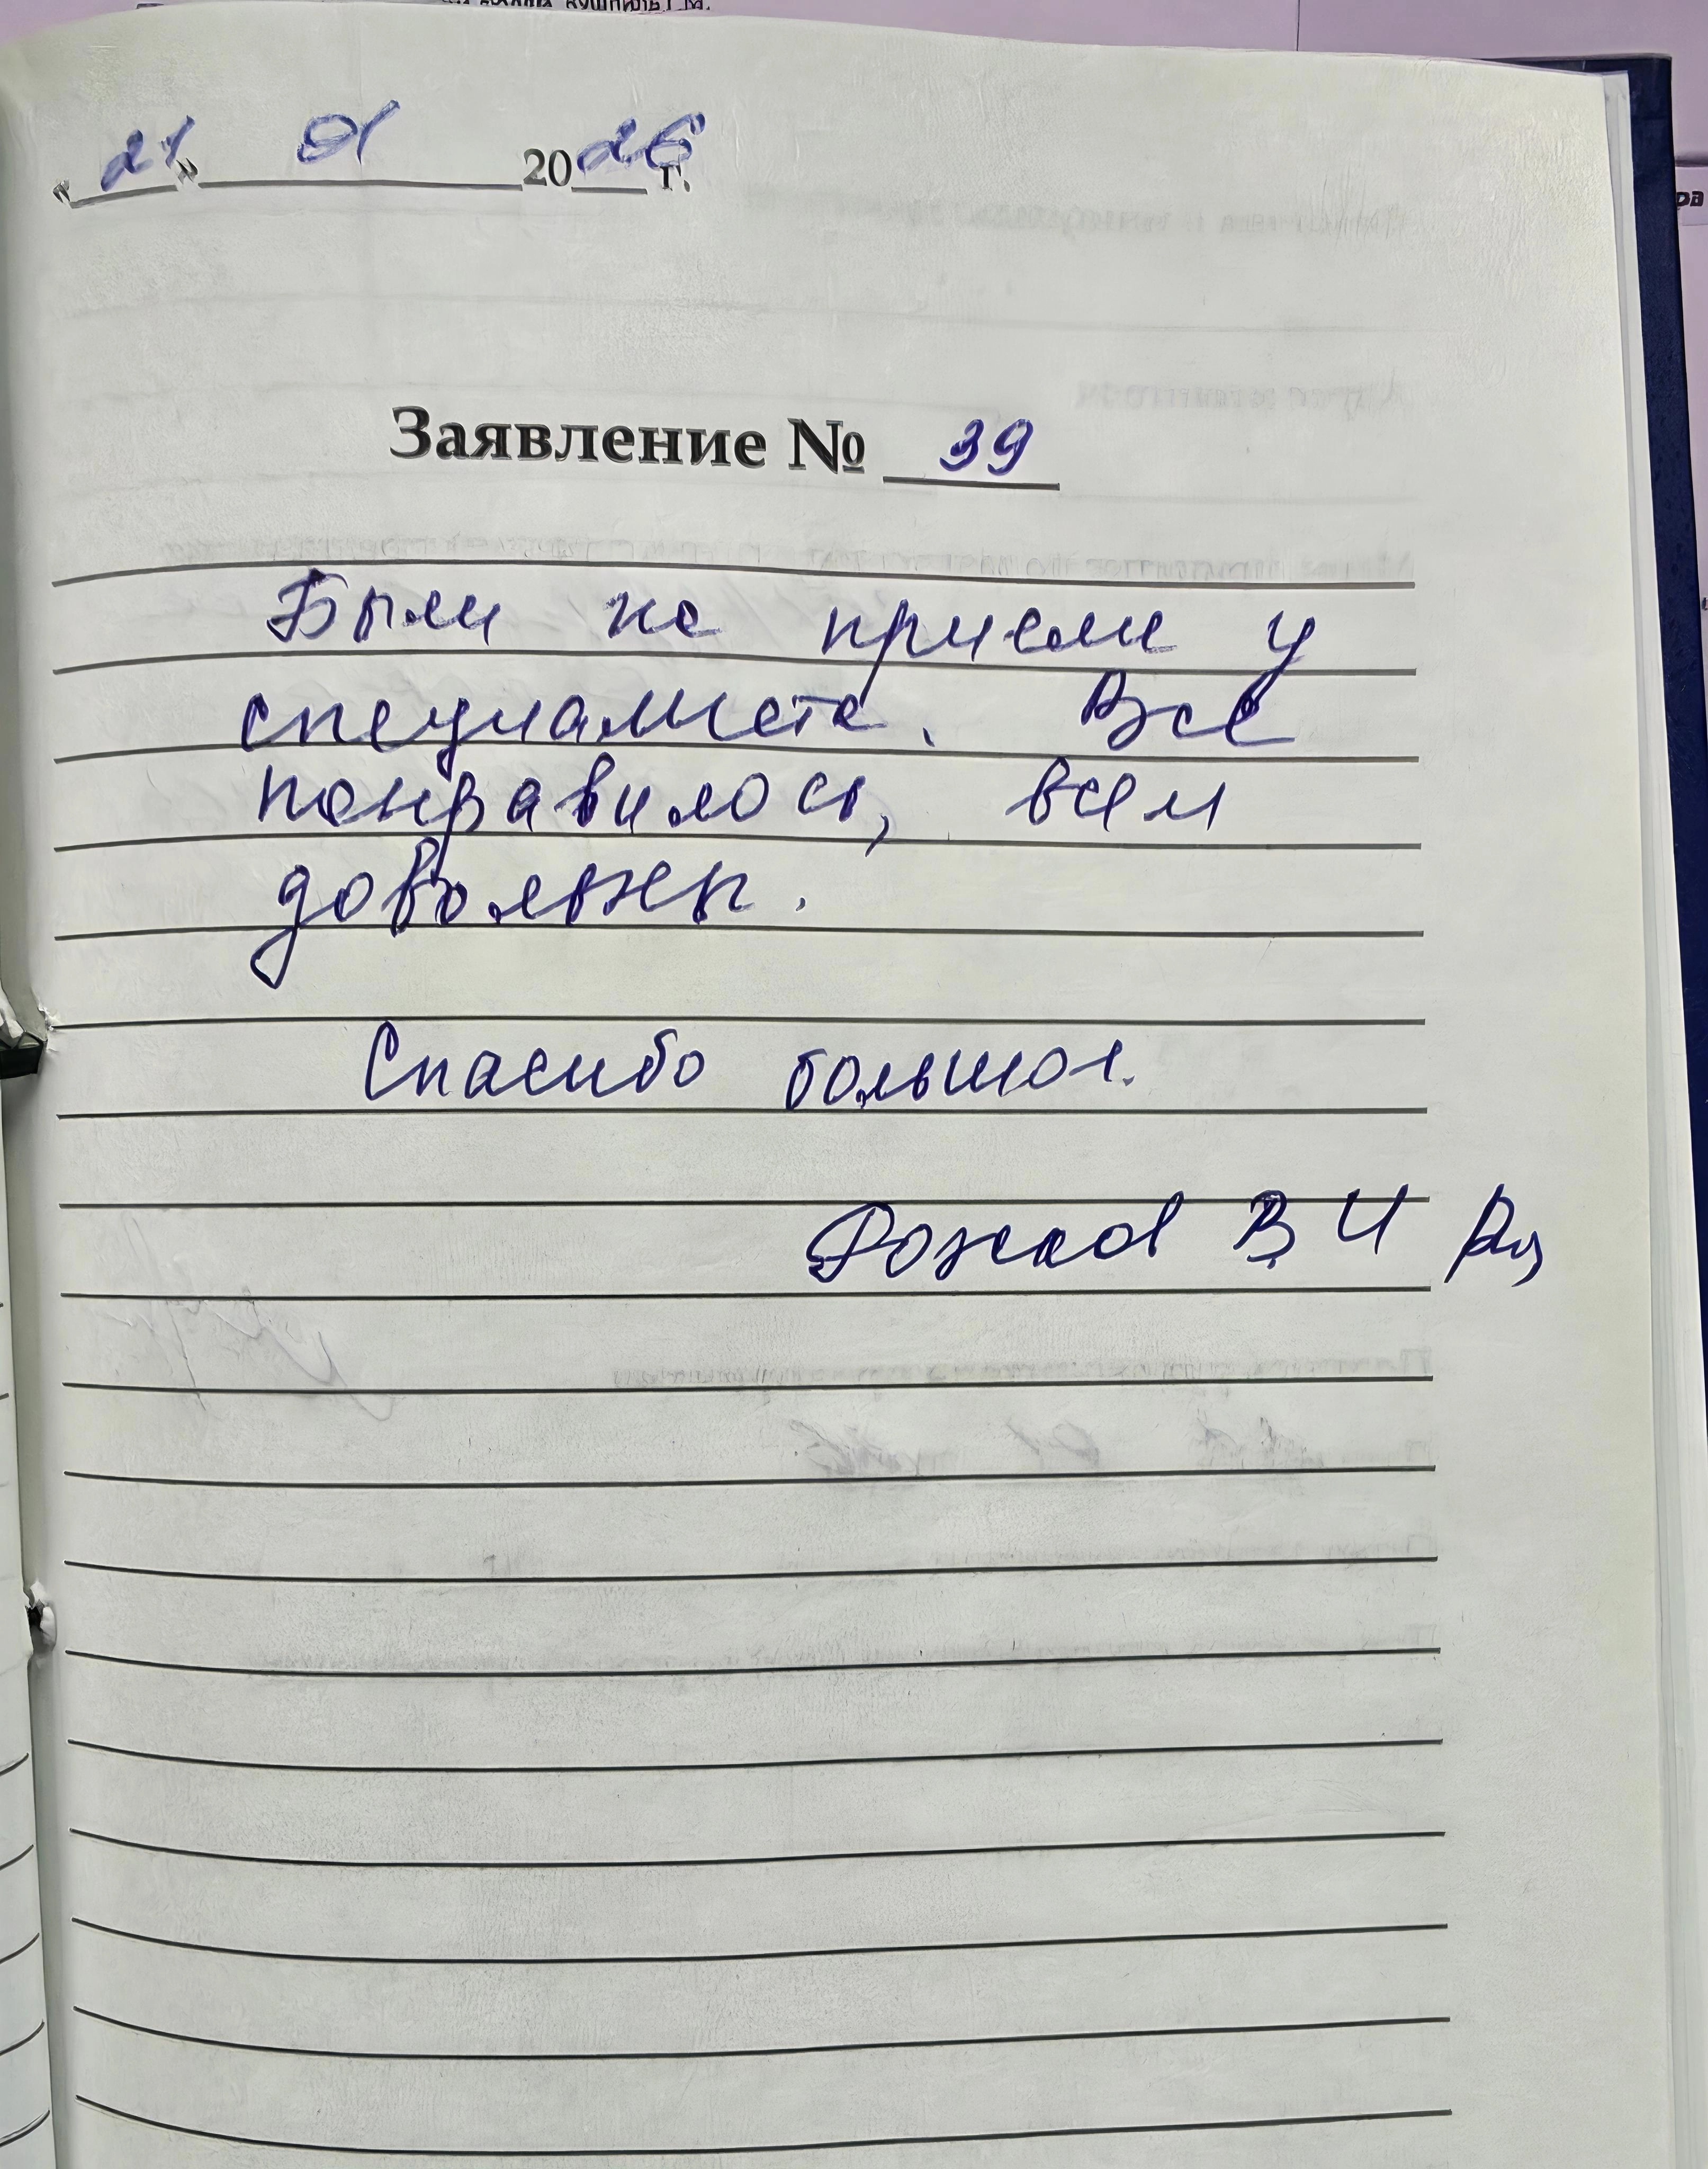 «21» 01 2026 г.
Заявление № 39
Были на приеме у
специалиста. Все
понравилось, всем
довольны.
Спасибо большое.
Рожков В И